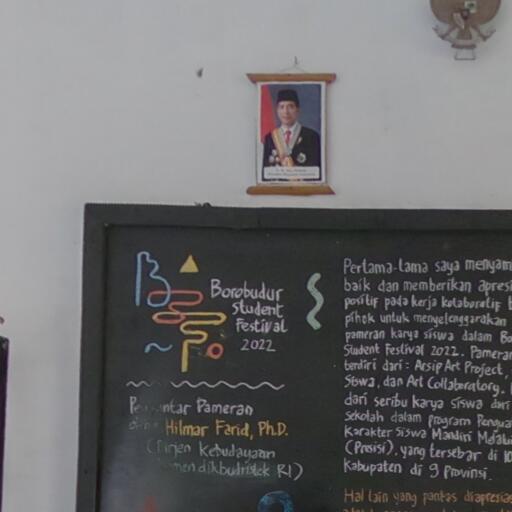 Borobudur
student
Festival
2022
Pengantar Pameran
oleh Hilmar Farid, Ph.D.
(Dirjen Kebudayaan
Kemendikbudristek RI)
Pertama-tama saya menyam
baik dan memberikan apresi
positif pada kerja kolaboratif b
pihak untuk menyelenggarakan
pameran karya siswa dalam Bo
Student Festival 2022. Pameran
terdiri dari: Arsip Art Project,
Siswa, dan Art Collaboratory.
dari seribu karya siswa dari
sekolah dalam program Penguat
Karakter Siswa Mandiri Melalui
(Prosisi), yang tersebar di 10
Kabupaten di 9 Provinsi.
Hal lain yang pantas diapresias